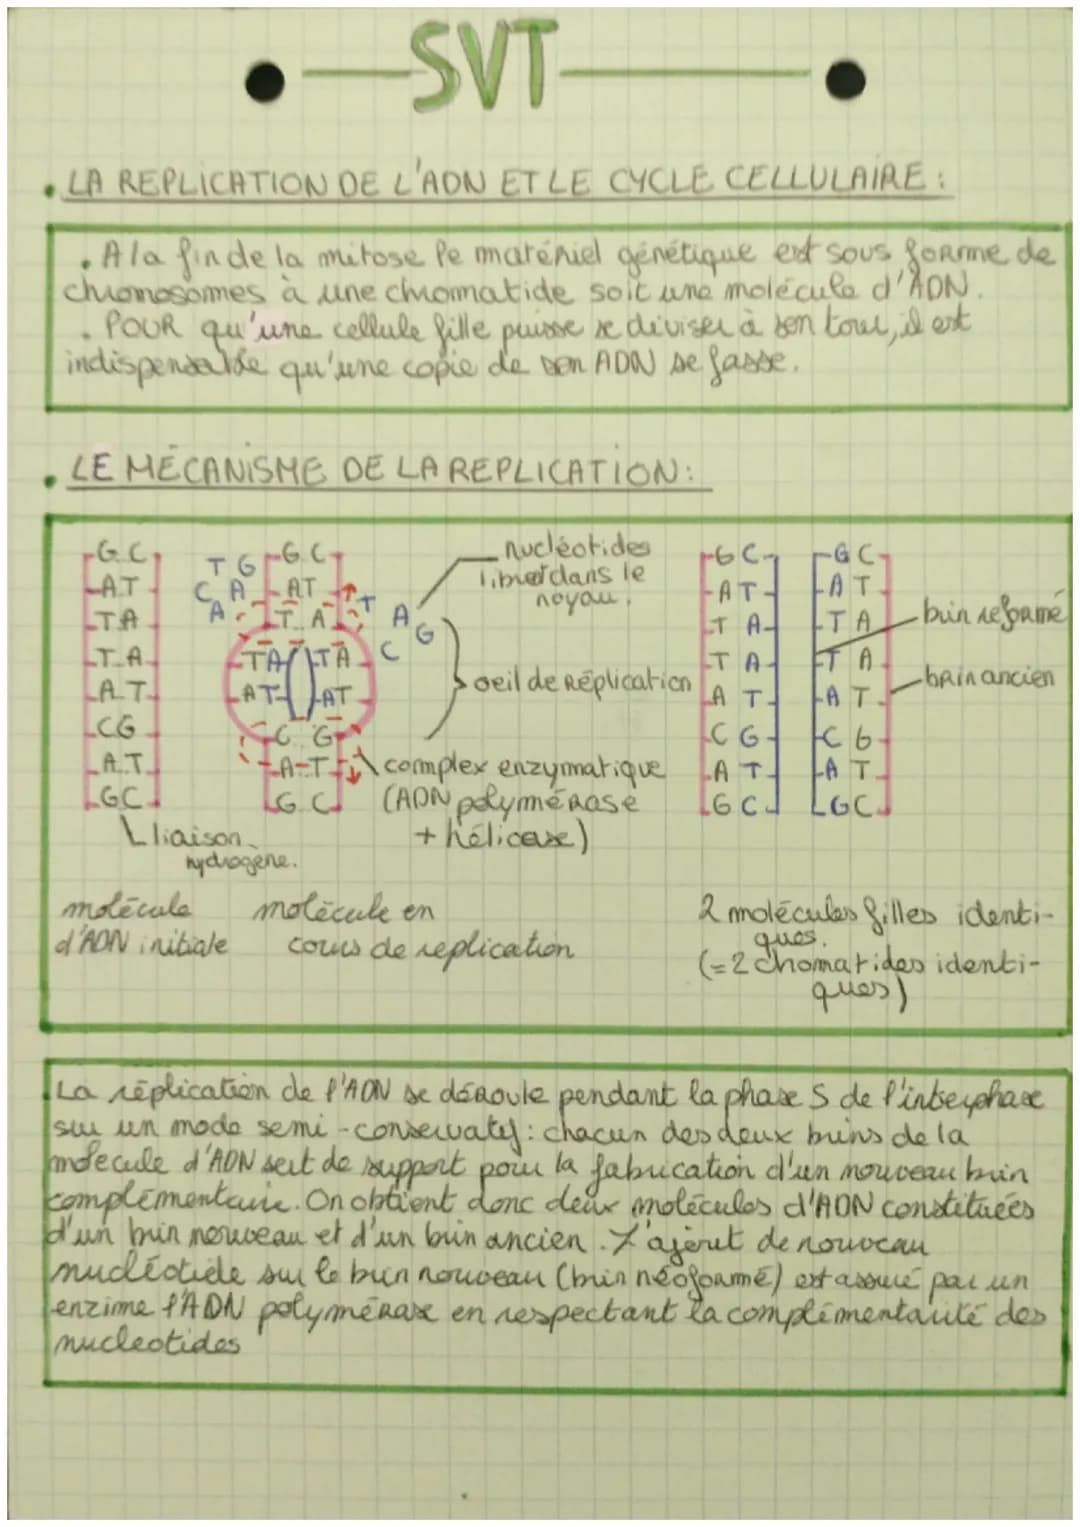 SVT
. LA REPLICATION DE L'ADN ET LE CYCLE CELLULAIRE :
. A la fin de la mitose le matériel génétique est sous forme de
chromosomes à une chromatide soit une molécule d'ADN.
. POUR qu'une cellule fille puisse se diviser à son tour, il est
indispensable qu'une copie de son ADN se fasse.
. LE MÉCANISME DE LA REPLICATION :
G C
A T
T A
T A
A T
C G
A T
G C
liaison
hydrogène.
molécule
d'ADN initiale
T G
C A
A
G C
A T
T A
T A T A
A T A T
C G
A T
G C
T A
C G
nucléotides
libres dans le
noyau.
oeil de Réplication
complex enzymatique
(ADN polymérase
+ hélicase)
molécule en
cours de replication
G C
A T
T A
T A
A T
C G
A T
G C
G C
A T
T A
T A
A T
C G
A T
G C
brin reformé
brin ancien
2 molécules filles identi-
ques.
(= 2 chomatides identi-
ques)
La réplication de l'ADN se déroule pendant la phase S de l'interphase
sur un mode semi-conservatif : chacun des deux brins de la
molecule d'ADN sert de support pour la fabrication d'un nouveau brin
complémentaire. On obtient donc deux molécules d'ADN constituées
d'un brin nouveau et d'un brin ancien. L'ajout de nouveau
nucléotide sur le brin nouveau (brin néoformé) est assuré par un
enzime l'ADN polymérase en respectant la complémentarité des
nucleotides